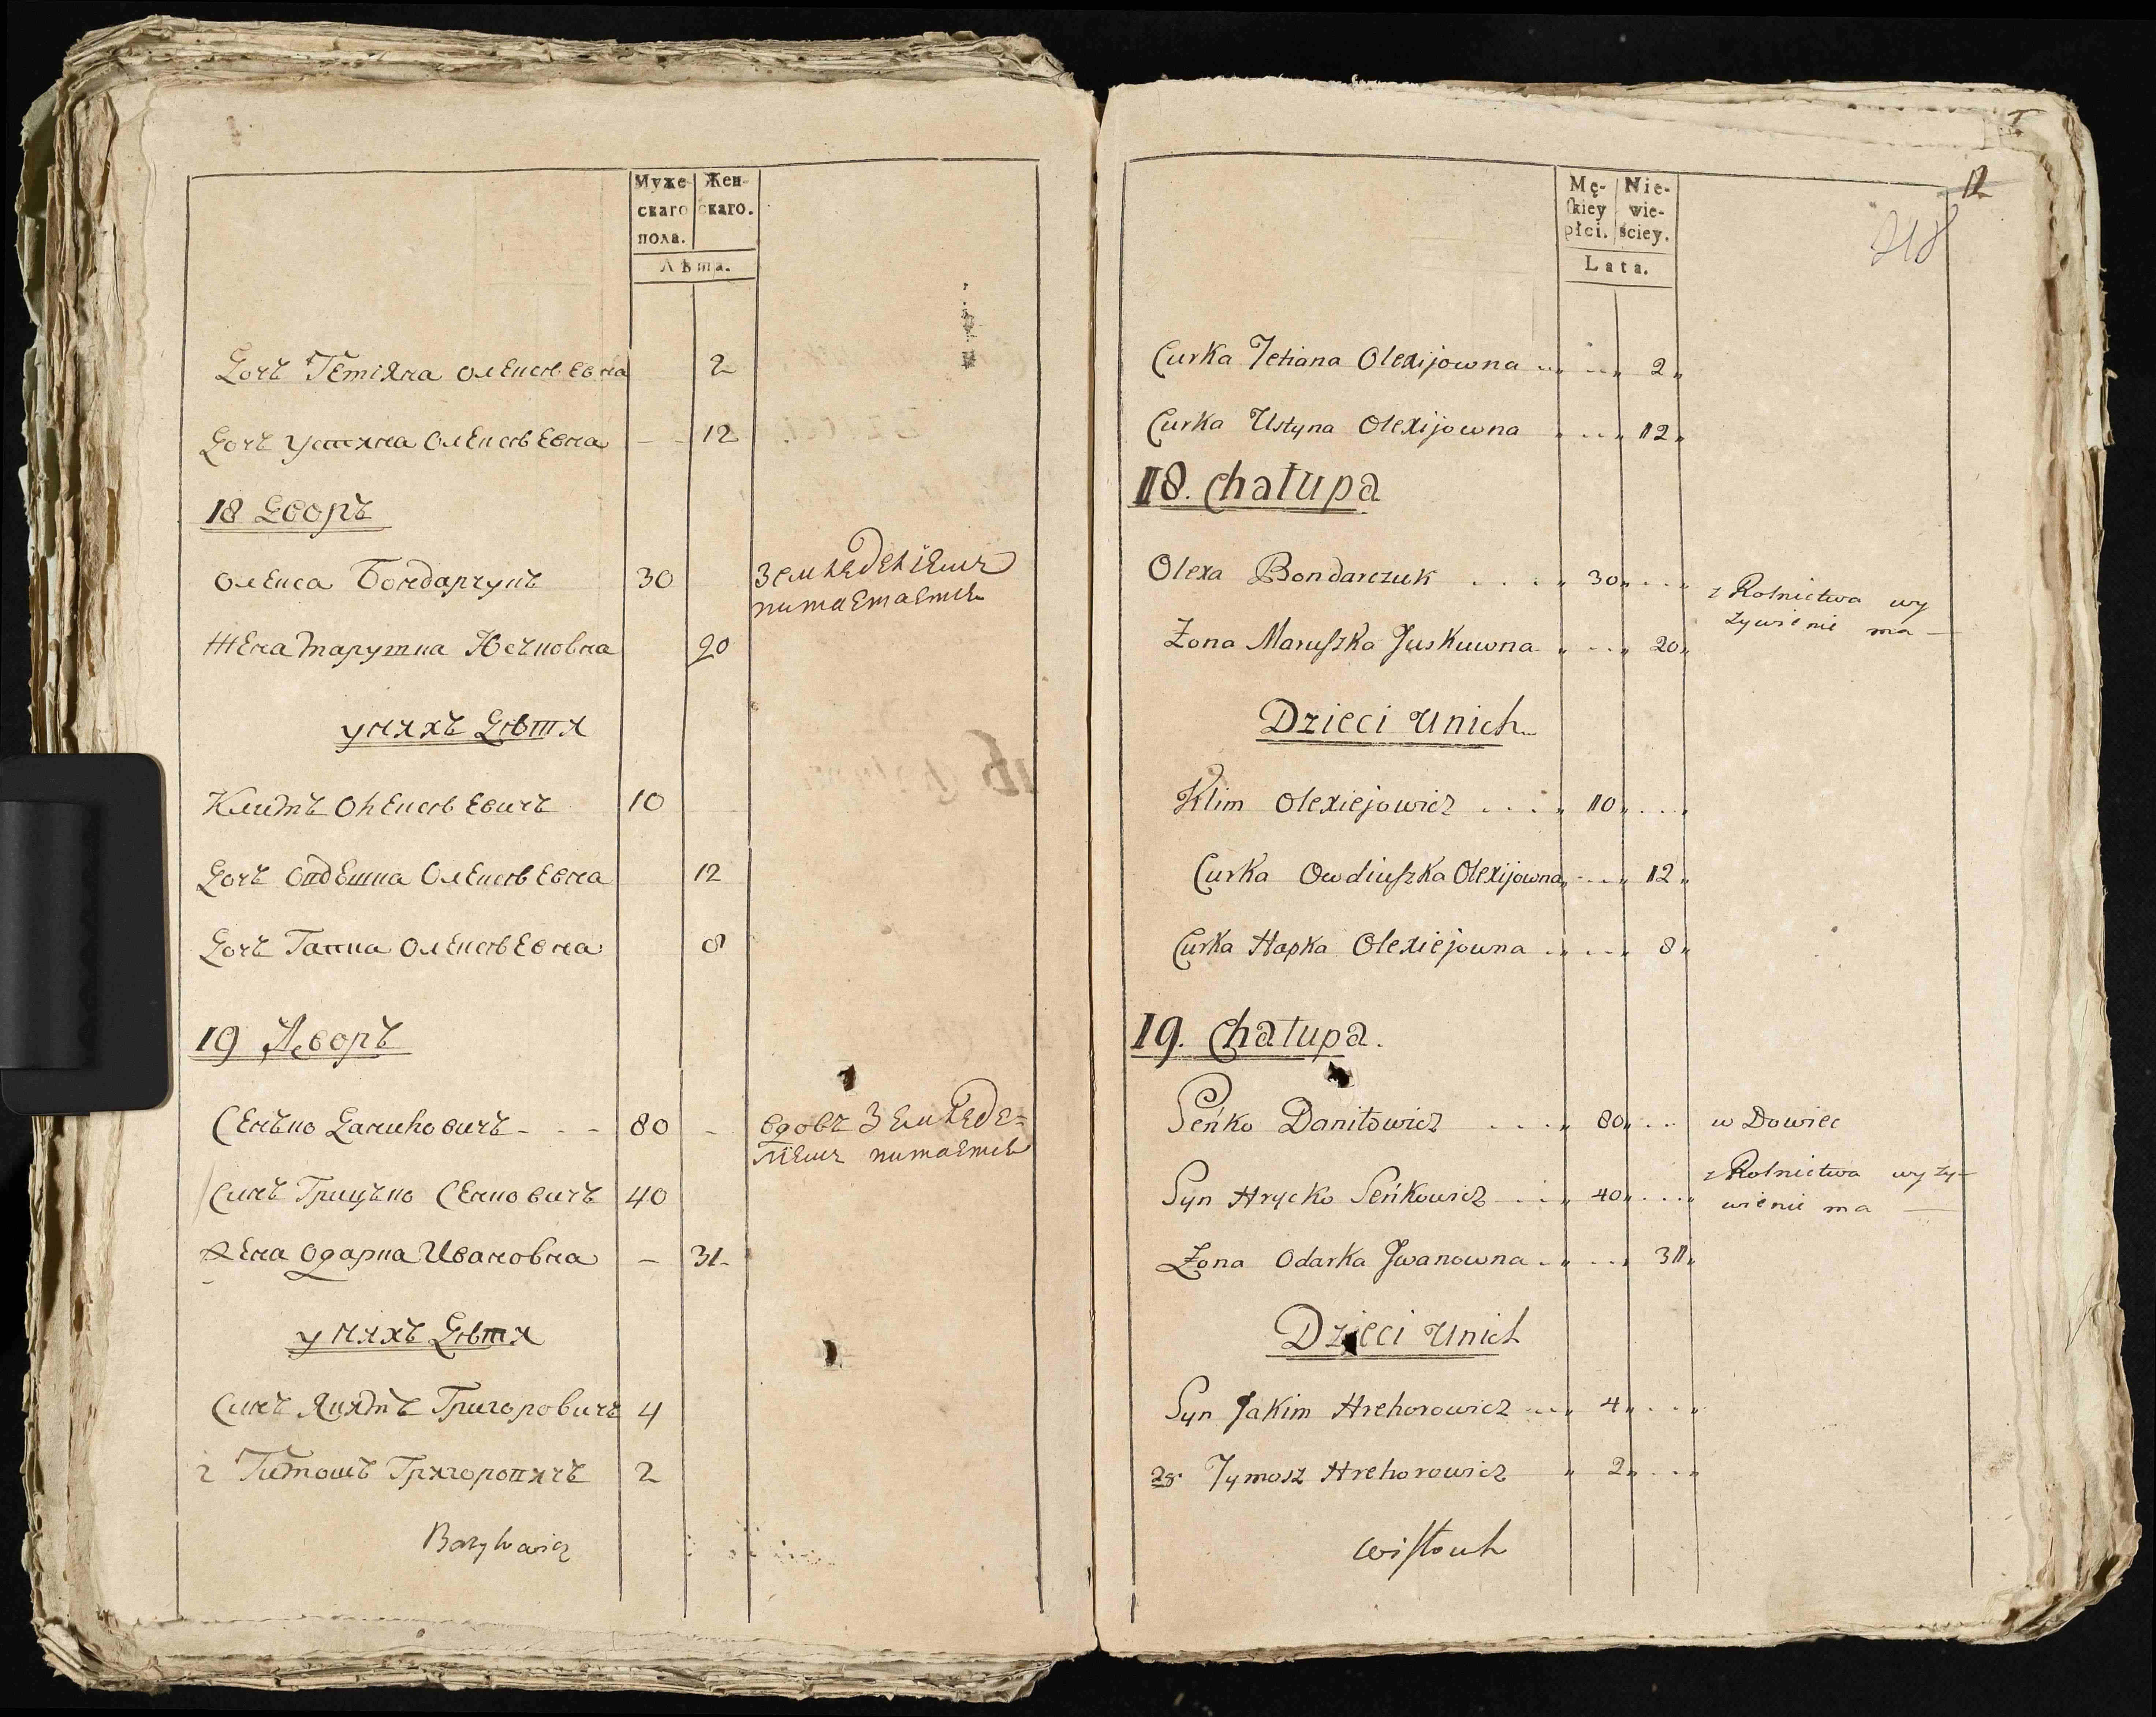 Муже-
скаго
пола.
Жен-
скаго.
Лѣта.
Дочъ Тетіяна Олексѣевна 2
Дочъ Устина Олексѣевна - - 12
18 Дворъ
Олекса Бондарчукъ 30 Земледеліемъ
питаетаетсь
Жена Марушка Юсчковна 20
у нихъ Дѣти
Климъ Олексѣевичъ 10
Дочъ Овдешка Олексѣевна 12
Дочъ Гапка Олексѣевна 8
19 Дворъ
Сенько Даниловичъ - - - 80 - вдовъ Земледе=
ліемъ питаетсь
Синъ Грицько Сенковичъ 40
Жена Одарка Ивановна - 31-
у нихъ Дѣти
Синъ Якимъ Григоровичъ 4
2 Тимошъ Григоровичъ 2
Bazylewicz
12
218
Mę-
ſkiey
płci.
Nie-
wie-
ściey.
Lata.
Curka Tetiana Olexijowna .. „ ... „ 2 „
Curka Ustyna Olexijowna „ ... „ 12 „
18. Chałupa
Olexa Bondarczuk . . . . „ 30 „ ... „ z Rolnictwa wy
żywienie ma —
Żona Maruſzka Juskuwna „ ... „ 20 „
Dzieci Unich
Klim Olexiejowicz . . . . „ 10 „ ... „
Curka Owdiuſzka Olexijowna „ ... „ 12 „
Curka Hapka Olexiejowna .. „ ... „ 8 „
19. Chałupa.
Seńko Daniłowicz . . . „ 80 „ ... w Dowiec
Syn Hrycko Seńkowicz ... „ 40 „ ... „ z Rolnictwa wyży-
wienie ma —
Żona Odarka Jwanowna .. „ ... „ 31 „
Dzieci Unich
Syn Jakim Hrehorowicz ... „ 4 „ ... „
2gi Tymosz Hrehorowicz „ 2 „ ... „